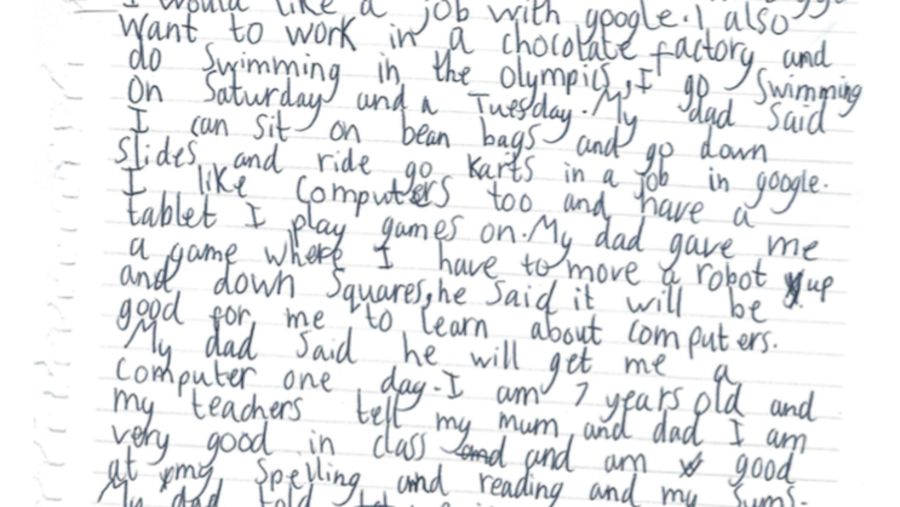 I would like a job with google. I also
want to work in a chocolate factory and
do swimming in the olympics, I go swimming
on Saturday and a Tuesday. My dad said
I can sit on bean bags and go down
slides and ride go karts in a job in google.
I like computers too and have a
tablet I play games on. My dad gave me
a game where I have to move a robot up
and down squares, he said it will be
good for me to learn about computers.
My dad said he will get me a
computer one day. I am 7 years old and
my teachers tell my mum and dad I am
very good in class and and am good
at my spelling and reading and my sums.
My dad told